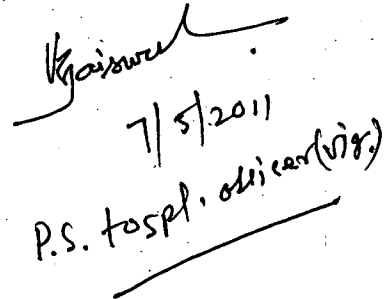 VKJaiswal
7/5/2011
P.S. to spl. officer (vig.)